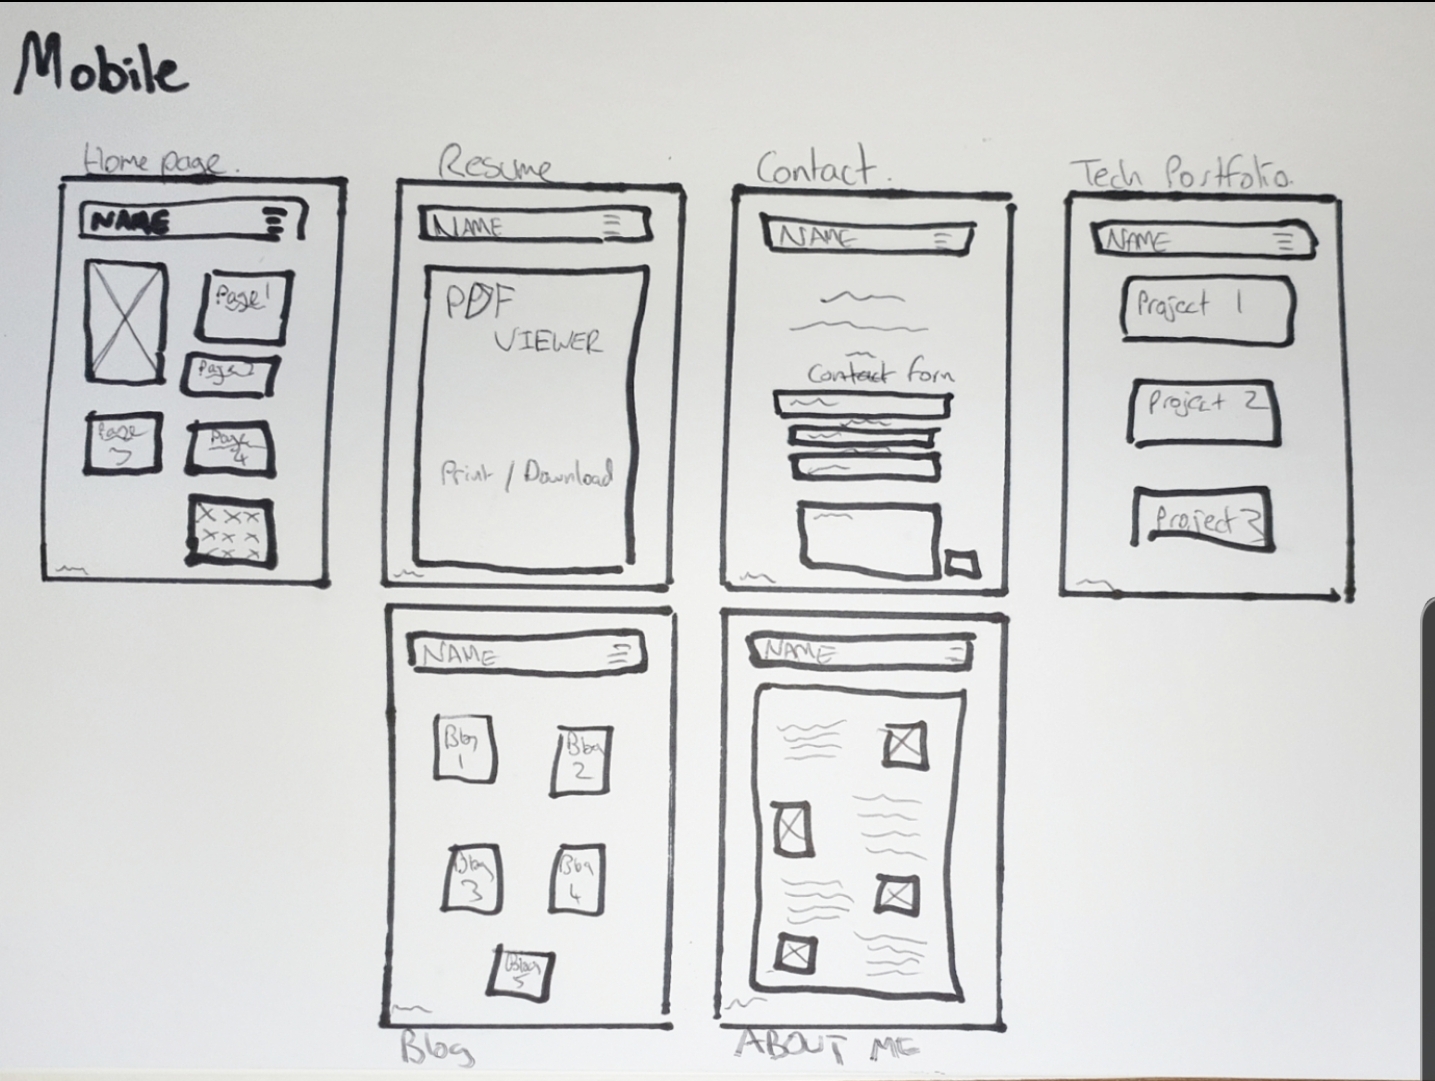 Mobile
Home page.
NAME
Page 1
Page 2
Page
3
Page
4
Resume
NAME
PDF
VIEWER
Print / Download
Contact.
NAME
Contact form
Tech Portfolio.
NAME
Project 1
Project 2
Project 3
NAME
Blog
1
Blog
2
Blog
3
Blog
4
Blog
5
Blog
NAME
ABOUT ME